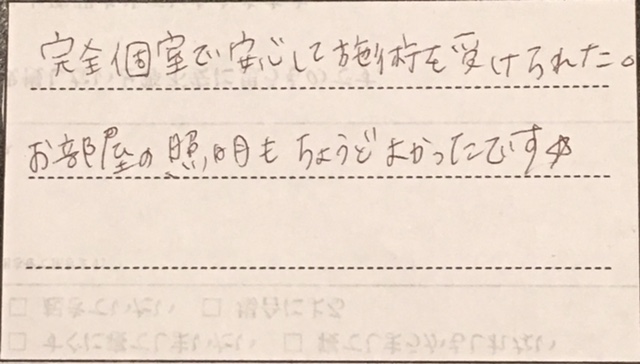 完全個室で安心して施術を受けられた。
お部屋の照明もちょうどよかったです☆